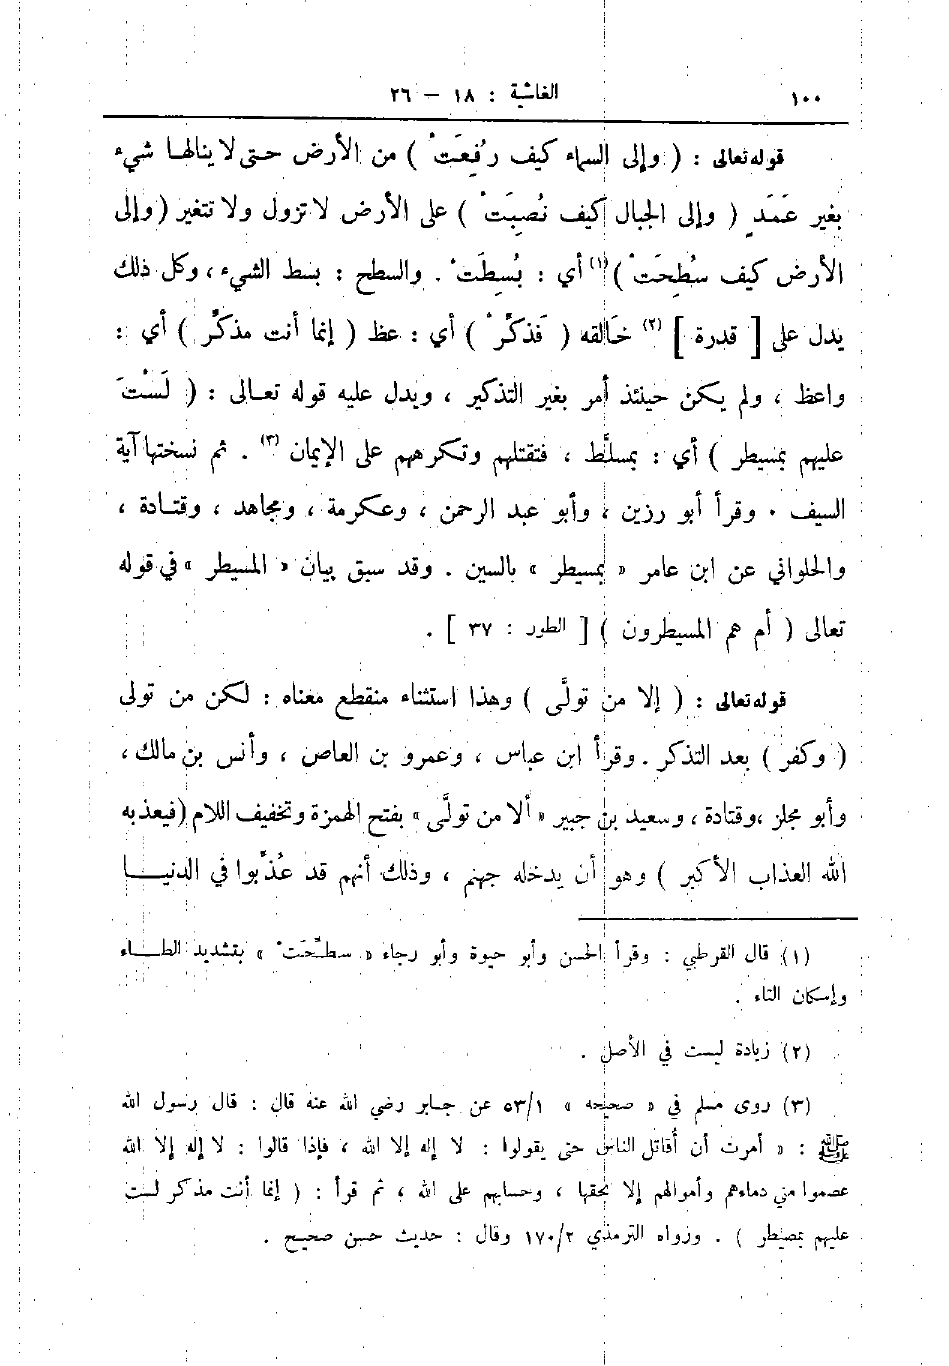 ١٠٠ الغاشية : ١٨ – ٢٦
قوله تعالى : ( وإلى السماء كيف رُفِعَتْ ) من الأرض حتى لا ينالها شيء
بغير عَمَدٍ ( وإلى الجبال كيف نُصِبَتْ ) على الأرض لا تزول ولا تتغير ( وإلى
الأرض كيف سُطِحَتْ )(١) أي : بُسِطَتْ . والسطح : بسط الشيء ، وكل ذلك
يدل على [ قدرة ] (٢) خَالقه ( فَذكِّرْ ) أي : عظ ( إنما أنت مذكِّر ) أي :
واعظ ، ولم يكن حينئذ أمر بغير التذكير ، ويدل عليه قوله تعالى : ( لَسْتَ
عليهم بمسيطر ) أي : بمسلَّط ، فتقتلهم وتكرههم على الإيمان (٣) . ثم نسختها آية
السيف . وقرأ أبو رزين ، وأبو عبد الرحمن ، وعكرمة ، ومجاهد ، وقتادة ،
والحلواني عن ابن عامر « بمسيطر » بالسين . وقد سبق بيان « المسيطر » في قوله
تعالى ( أم هم المسيطرون ) [ الطور : ٣٧ ] .
قوله تعالى : ( إلا من تولَّى ) وهذا استثناء منقطع معناه : لكن من تولى
( وكفر ) بعد التذكر . وقرأ ابن عباس ، وعمرو بن العاص ، وأنس بن مالك ،
وأبو مجلز ، وقتادة ، وسعيد بن جبير « ألا من تولَّى » بفتح الهمزة وتخفيف اللام ( فيعذبه
الله العذاب الأكبر ) وهو أن يدخله جهنم ، وذلك أنهم قد عُذِّبوا في الدنيـــا
(١) قال القرطبي : وقرأ الحسن وأبو حيوة وأبو رجاء « سطِّحَتْ » بتشديد الطـــاء
وإسكان التاء .
(٢) زيادة ليست في الأصل .
(٣) روى مسلم في « صحيحه » ٥٣/١ عن جابر رضي الله عنه قال : قال رسول الله
ﷺ : « أمرت أن أقاتل الناس حتى يقولوا : لا إله إلا الله ، فإذا قالوا : لا إله إلا الله
عصموا مني دماءهم وأموالهم إلا بحقها ، وحسابهم على الله ، ثم قرأ : ( إنما أنت مذكر لست
عليهم بمصيطر ) . ورواه الترمذي ١٧٠/٢ وقال : حديث حسن صحيح .